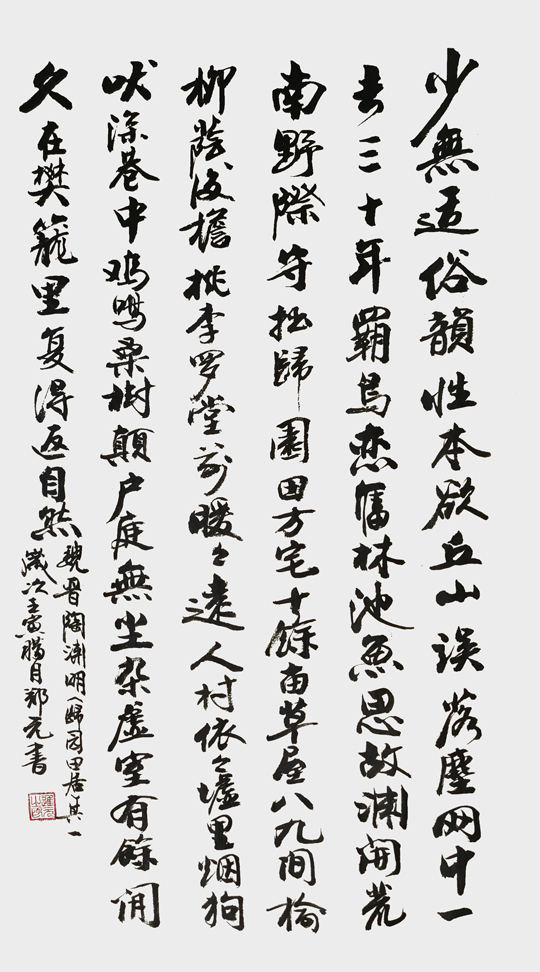 少無适俗韻性本欲丘山误落塵网中一
去三十年羈鸟恋舊林池魚思故渊開荒
南野際守拙歸園田方宅十餘亩草屋八九间榆
柳蔭後檐桃李罗堂前暖々遠人村依々墟里烟狗
吠深巷中鸡鸣桑樹顛户庭無尘杂虚室有餘閒
久在樊籠里复得返自然
魏晋陶渊明《歸园田居其一
歲次壬寅腊月郑元書